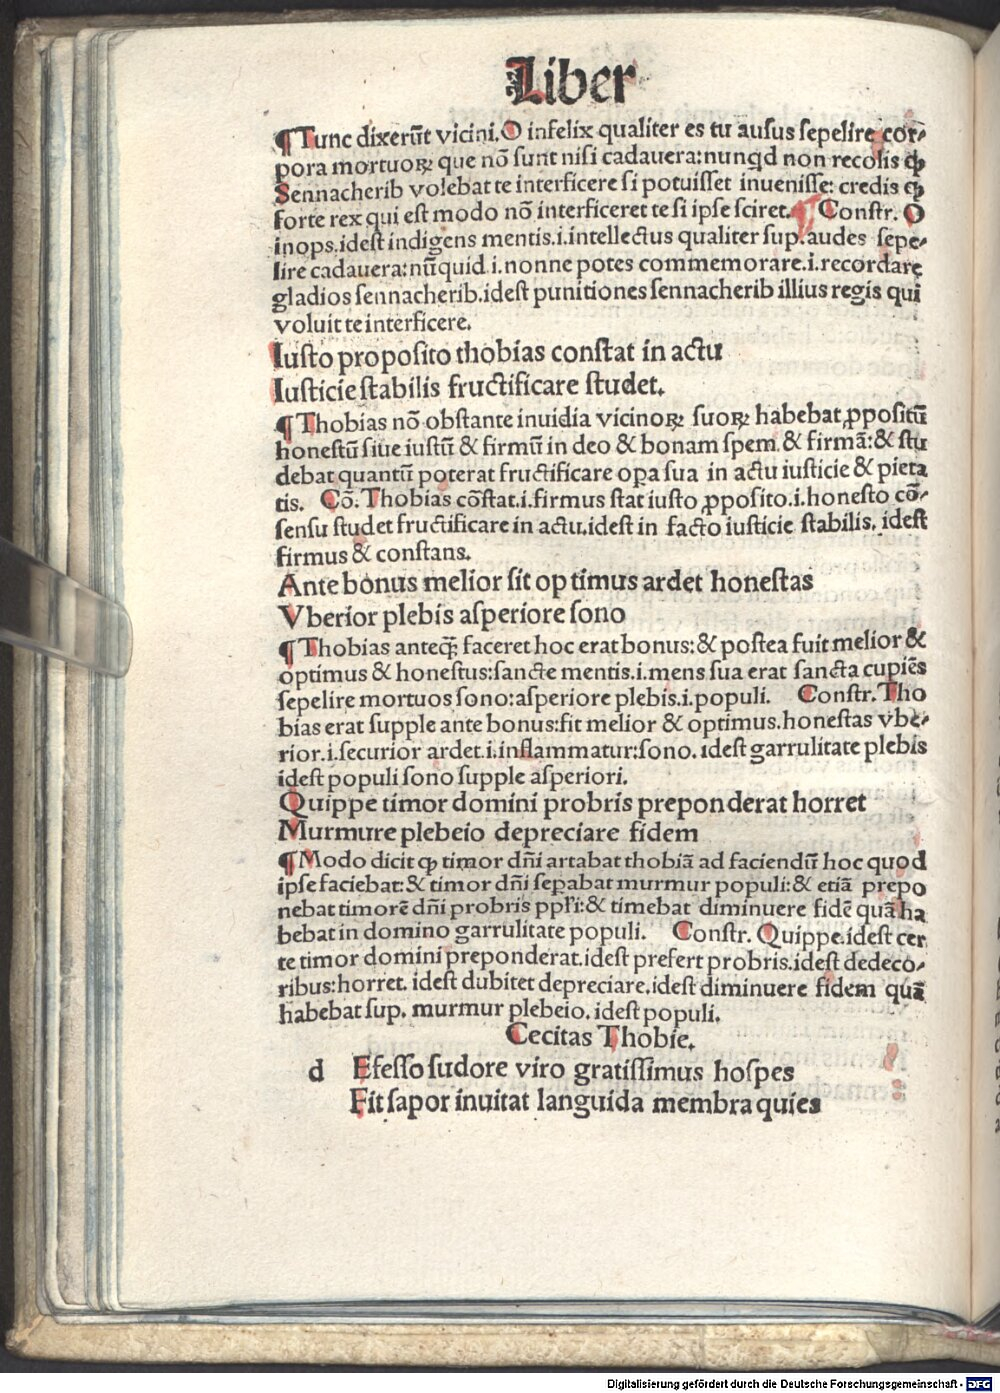 Liber
¶Tunc dixerũt vicini.O infelix qualiter es tu ausus sepelire cor⸗
pora mortuoꝝ que nõ sunt nisi cadauera:nunqd non recolis ꝙ
Sennacherib volebat te interficere si potuisset inuenisse: credis ꝙ
forte rex qui est modo nõ interficeret te si ipse sciret.¶ Constr. O
inops.idest indigens mentis.i.intellectus qualiter sup.audes sepe⸗
lire cadauera:nũquid.i.nonne potes commemorare.i.recordare
gladios sennacherib.idest punitiones sennacherib illius regis qui
voluit te interficere.
Iusto proposito thobias constat in actu
Iusticie stabilis fructificare studet.
¶Thobias nõ obstante inuidia vicinoꝝ suoꝝ habebat ꝓpositũ
honestũ siue iustũ & firmũ in deo & bonam spem & firmã:& stu
debat quantũ poterat fructificare oꝑa sua in actu iusticie & pieta
tis. Cõ.Thobias cõstat.i.firmus stat iusto ꝓposito.i.honesto cõ⸗
sensu studet fructificare in actu.idest in facto iusticie stabilis. idest
firmus & constans.
Ante bonus melior sit optimus ardet honestas
Vberior plebis asperiore sono
¶Thobias anteꝗ̃ faceret hoc erat bonus:& postea fuit melior &
optimus & honestus:sancte mentis.i.mens sua erat sancta cupiẽs
sepelire mortuos sono:asperiore plebis.i.populi. Constr.Tho
bias erat supple ante bonus:fit melior & optimus.honestas vbe⸗
rior.i.securior ardet.i.inflammatur:sono.idest garrulitate plebis
idest populi sono supple asperiori.
Quippe timor domini probris preponderat horret
Murmure plebeio depreciare fidem
¶Modo dicit ꝙ timor dñi artabat thobiã ad faciendũ hoc quod
ipse faciebat:& timor dñi seꝑabat murmur populi:& etiã prepo
nebat timorẽ dñi probris ppľi:& timebat diminuere fidẽ quã ha
bebat in domino garrulitate populi. Constr. Quippe.idest cer
te timor domini preponderat.idest prefert probris.idest dedeco⸗
ribus:horret. idest dubitet depreciare.idest diminuere fidem quã
habebat sup. murmur plebeio. idest populi.
Cecitas Thobie.
d Efesso sudore viro gratissimus hospes
Fit sapor inuitat languida membra quies
Digitalisierung gefördert durch die Deutsche Forschungsgemeinschaft - DFG